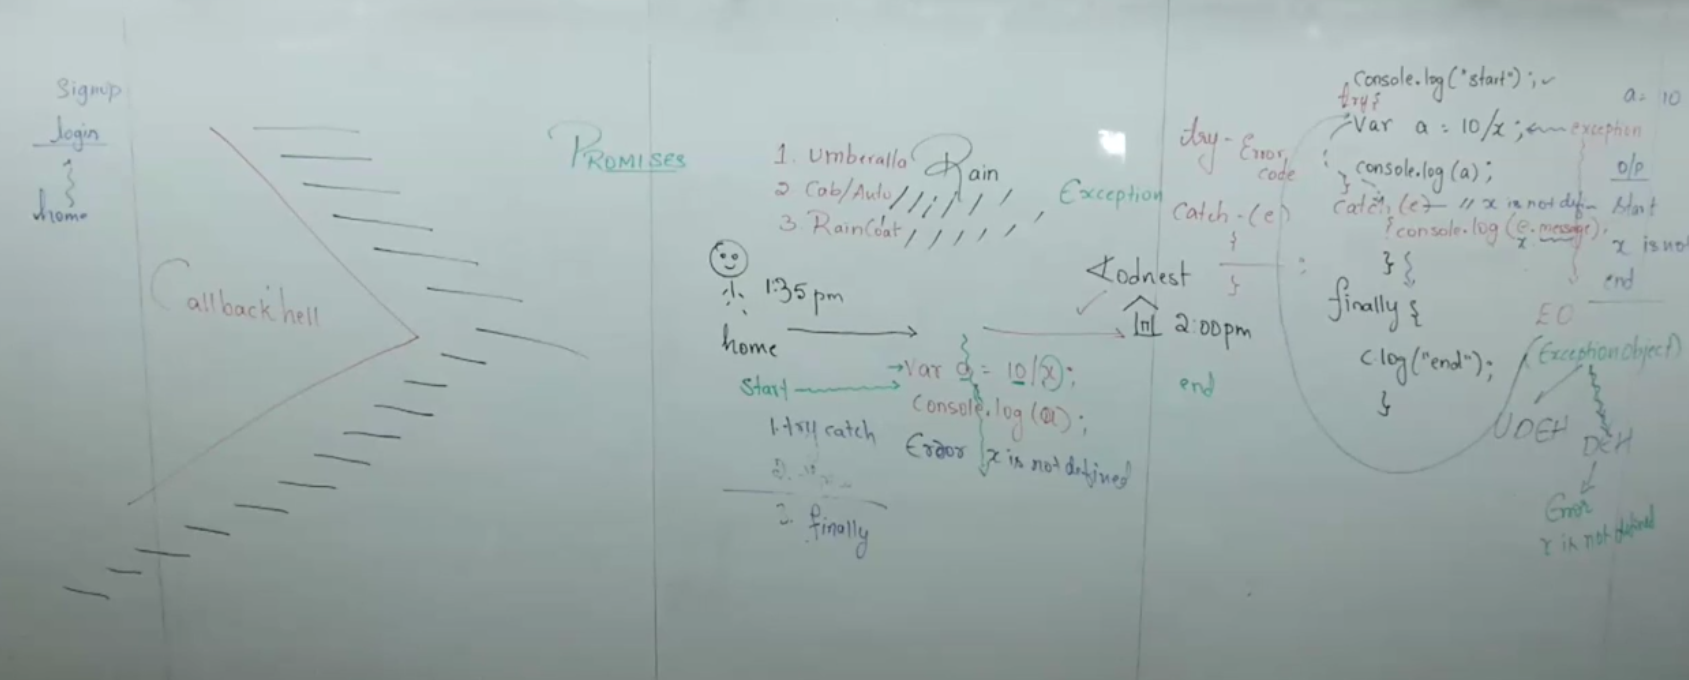 Signup
login
home
Callback hell
PROMISES
1. Umberalla
2. Cab/Auto
3. RainCoat
Rain
Exception
1:35 pm
home
Kodnest
2:00pm
Start
→Var a = 10/x;
Console.log(a);
end
1. try catch
Error x is not defined
3. finally
try - Error
code
Catch - (e)
{
}
Console.log("start");
try{
Var a = 10/x; exception
console.log(a);
}
catch (e) // x is not defin
{console.log(e.message);
x
}
finally {
c.log("end");
}
a = 10
o/p
Start
x is not
end
EO
(Exception Object)
UDEH
DEH
Error
x is not defined